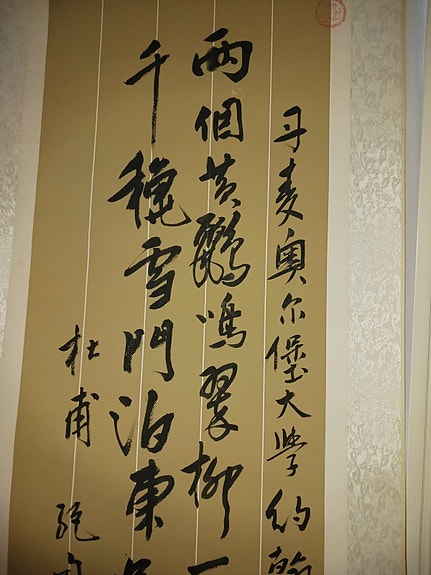 丹麦奥尔堡大学约翰
兩個黄鸝鳴翠柳一
千穐雪門泊東
杜甫 絕